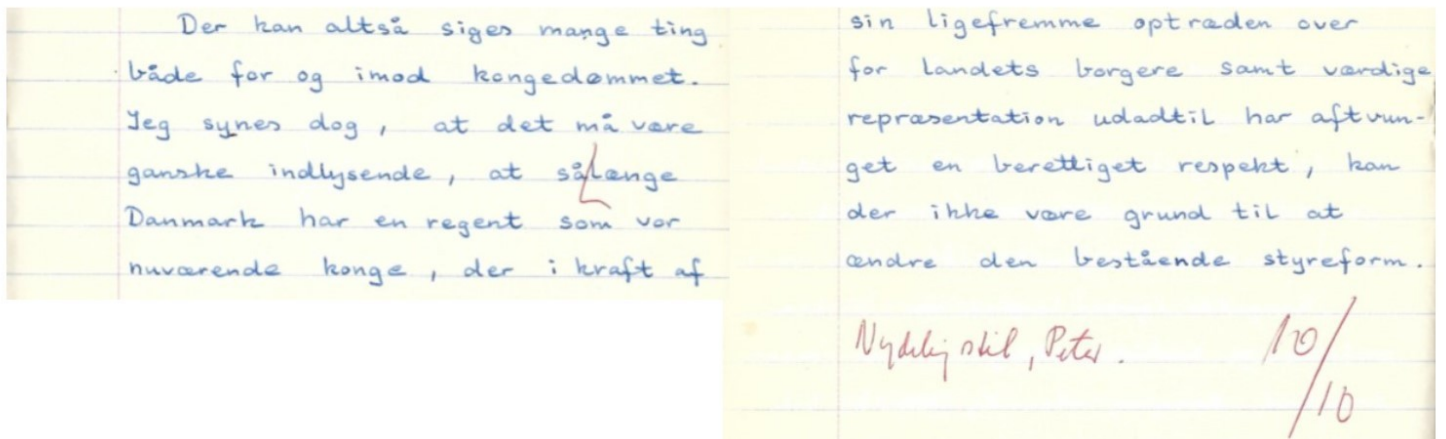 Der kan altså siges mange ting
både for og imod kongedømmet.
Jeg synes dog, at det må være
ganske indlysende, at sålænge
Danmark har en regent som vor
nuværende konge, der i kraft af
sin ligefremme optræden over
for landets borgere samt værdige
repræsentation udadtil har aftvun-
get en berettiget respekt, kan
der ikke være grund til at
ændre den bestående styreform.
Nydelig stil, Peter.
10/10